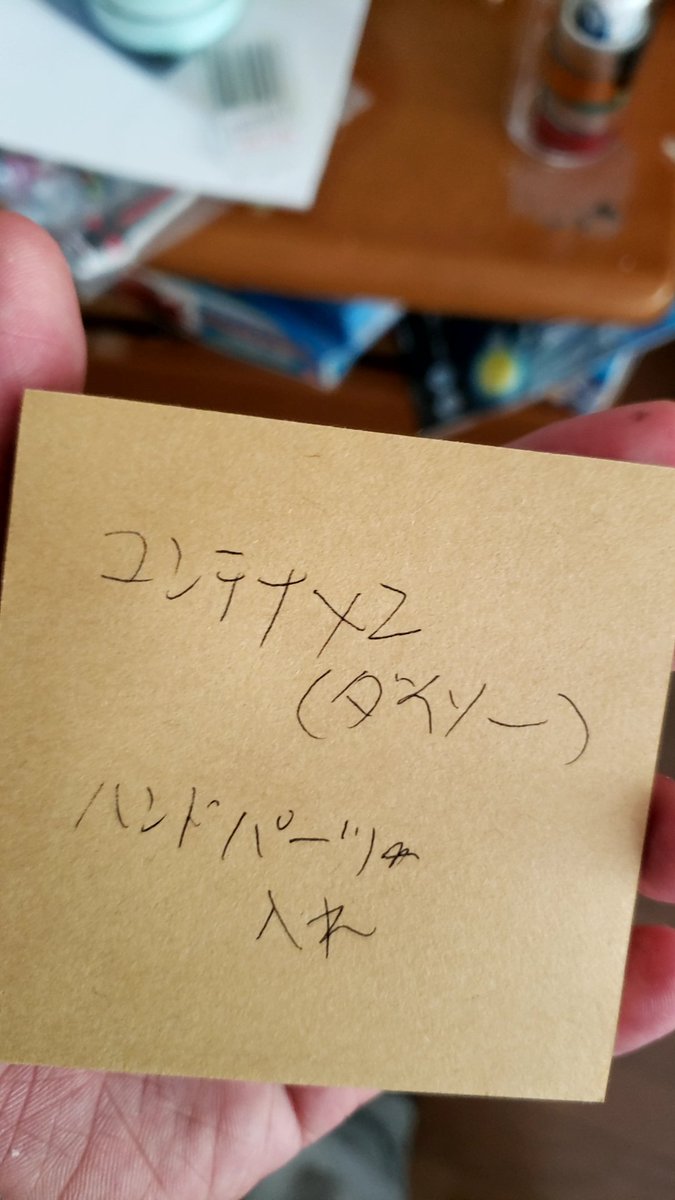 コンテナ×2
(ダイソー)
ハンドパーツ
入れ